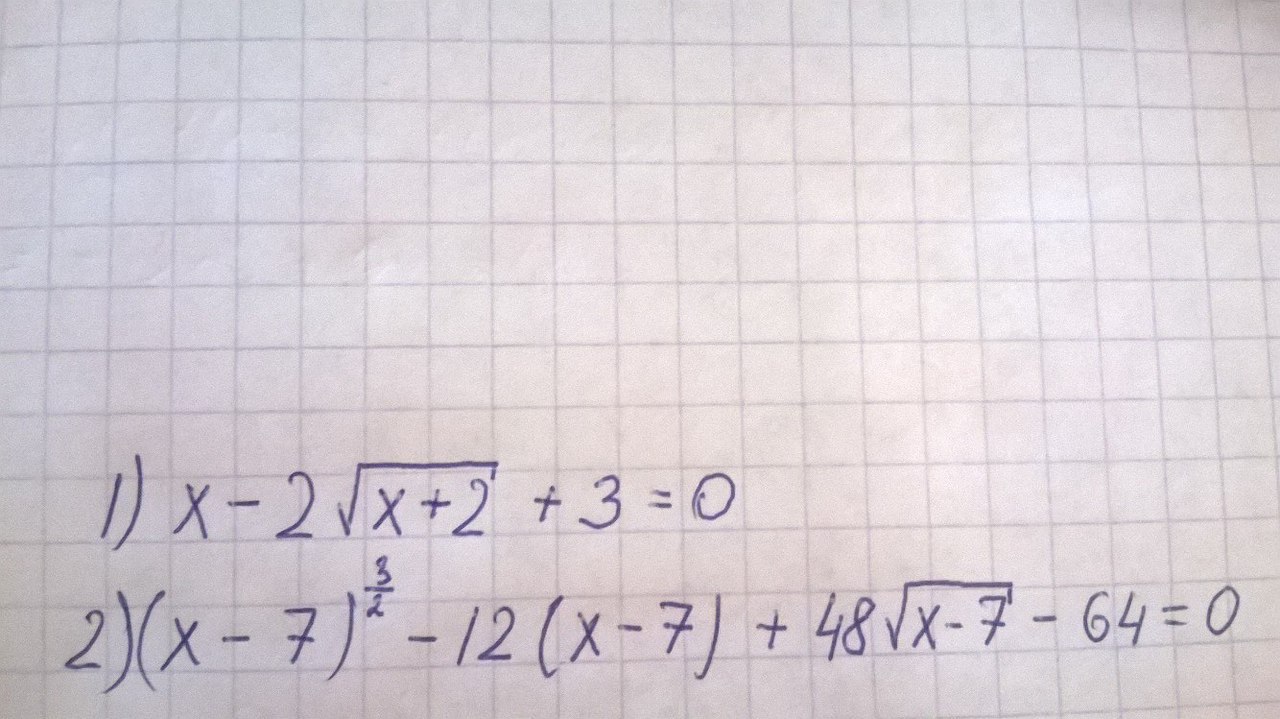 1) x - 2√(x+2) + 3 = 0
2) (x - 7)^(3/2) - 12 (x - 7) + 48√(x - 7) - 64 = 0